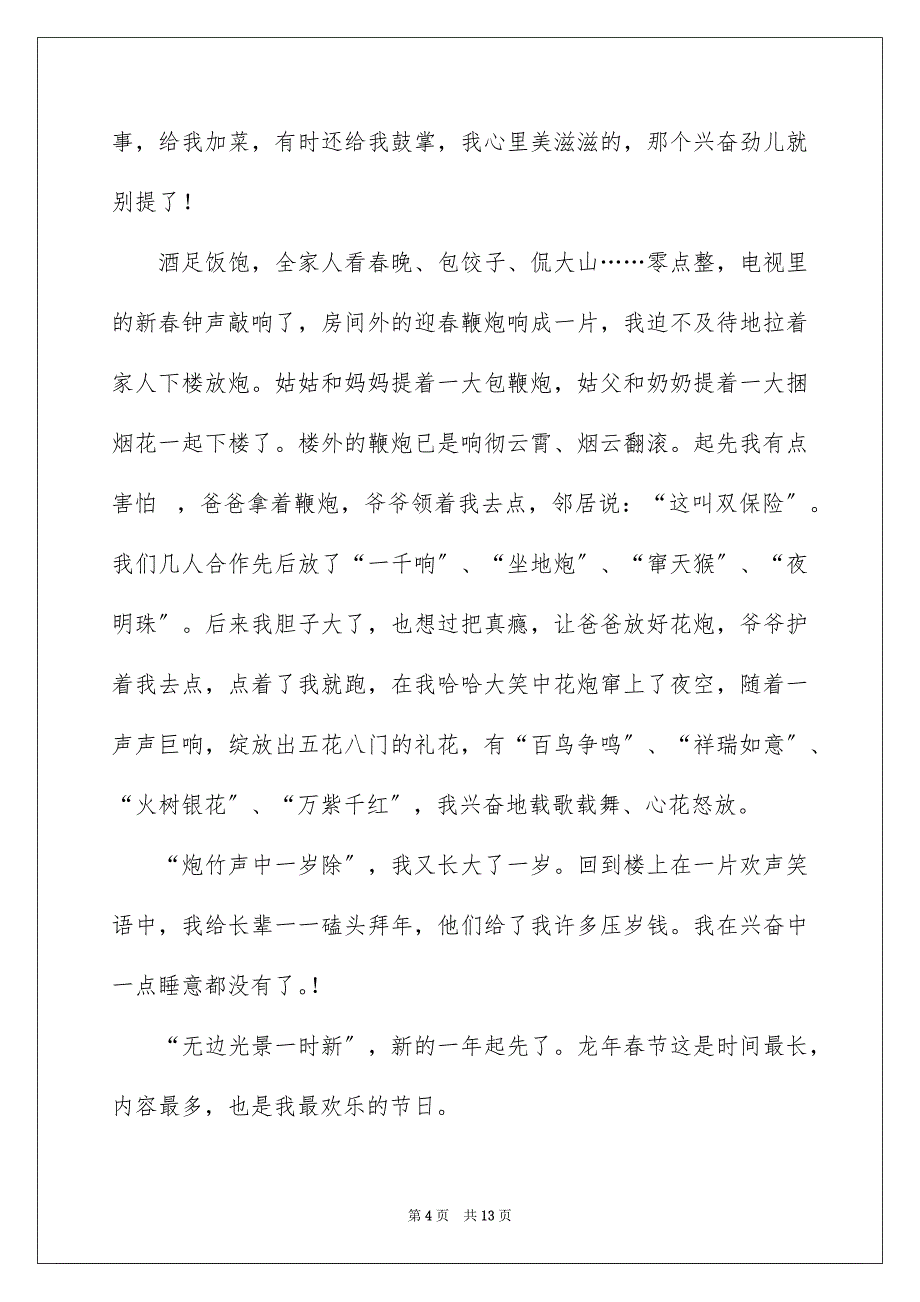 事，给我加菜，有时还给我鼓掌，我心里美滋滋的，那个兴奋劲儿就
别提了！
酒足饭饱，全家人看春晚、包饺子、侃大山……零点整，电视里
的新春钟声敲响了，房间外的迎春鞭炮响成一片，我迫不及待地拉着
家人下楼放炮。姑姑和妈妈提着一大包鞭炮，姑父和奶奶提着一大捆
烟花一起下楼了。楼外的鞭炮已是响彻云霄、烟云翻滚。起先我有点
害怕 ，爸爸拿着鞭炮，爷爷领着我去点，邻居说：“这叫双保险〞。
我们几人合作先后放了“一千响〞、“坐地炮〞、“窜天猴〞、“夜
明珠〞。后来我胆子大了，也想过把真瘾，让爸爸放好花炮，爷爷护
着我去点，点着了我就跑，在我哈哈大笑中花炮窜上了夜空，随着一
声声巨响，绽放出五花八门的礼花，有“百鸟争鸣〞、“祥瑞如意〞、
“火树银花〞、“万紫千红〞，我兴奋地载歌载舞、心花怒放。
“炮竹声中一岁除〞，我又长大了一岁。回到楼上在一片欢声笑
语中，我给长辈一一磕头拜年，他们给了我许多压岁钱。我在兴奋中
一点睡意都没有了。！
“无边光景一时新〞，新的一年起先了。龙年春节这是时间最长，
内容最多，也是我最欢乐的节日。
第 4 页 共 13 页